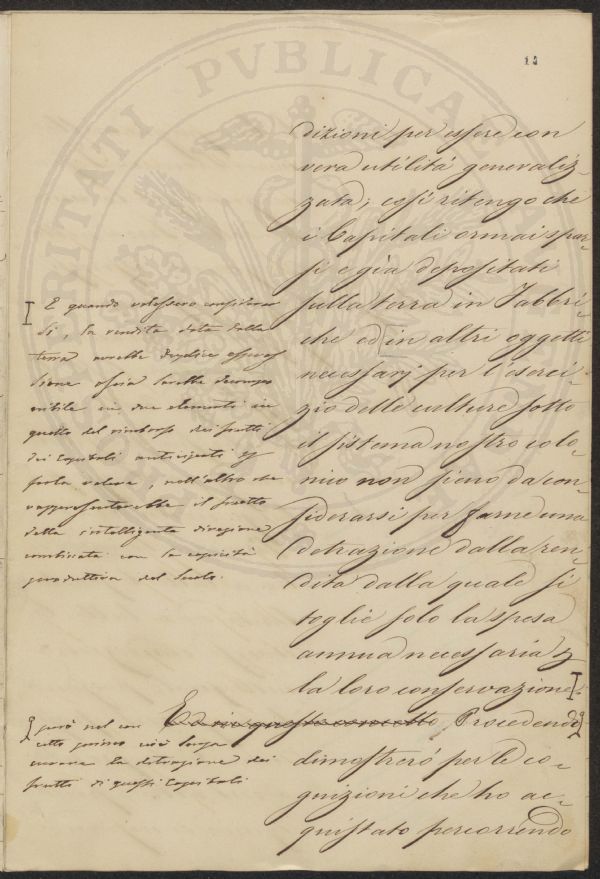 14
dizioni per essere con
vera utilitá generaliz-
zata; così ritengo che
i Capitali ormai spar-
si e già depositati
sulla terra in Fabbri-
che ed in altri oggetti
necessarj per l'eserci-
zio delle culture sotto
il sistema nostro colo-
nico non sieno da con-
siderarsi per farne una
detrazione dalla ren-
dita dalla quale si
toglie solo la spesa
annua necessaria p
la loro conservazione.
Procedendo
dimostreró per le co-
gnizioni che ho ac-
quistato percorrendo
E quando volessero considerar
si, la rendita data dalla
terra avrebbe duplice espres
sione ossia sarebbe decompo
nibile in due elementi in
quello del rimborso dei frutti
dei Capitali anticipati e
nell'altro che
rappresenterebbe il frutto
della intelligente direzione
combinata con la capacità
produttiva del Suolo.
però nel con
cetto primo
la detrazione dei
frutti di questi Capitali
PVBLICAE